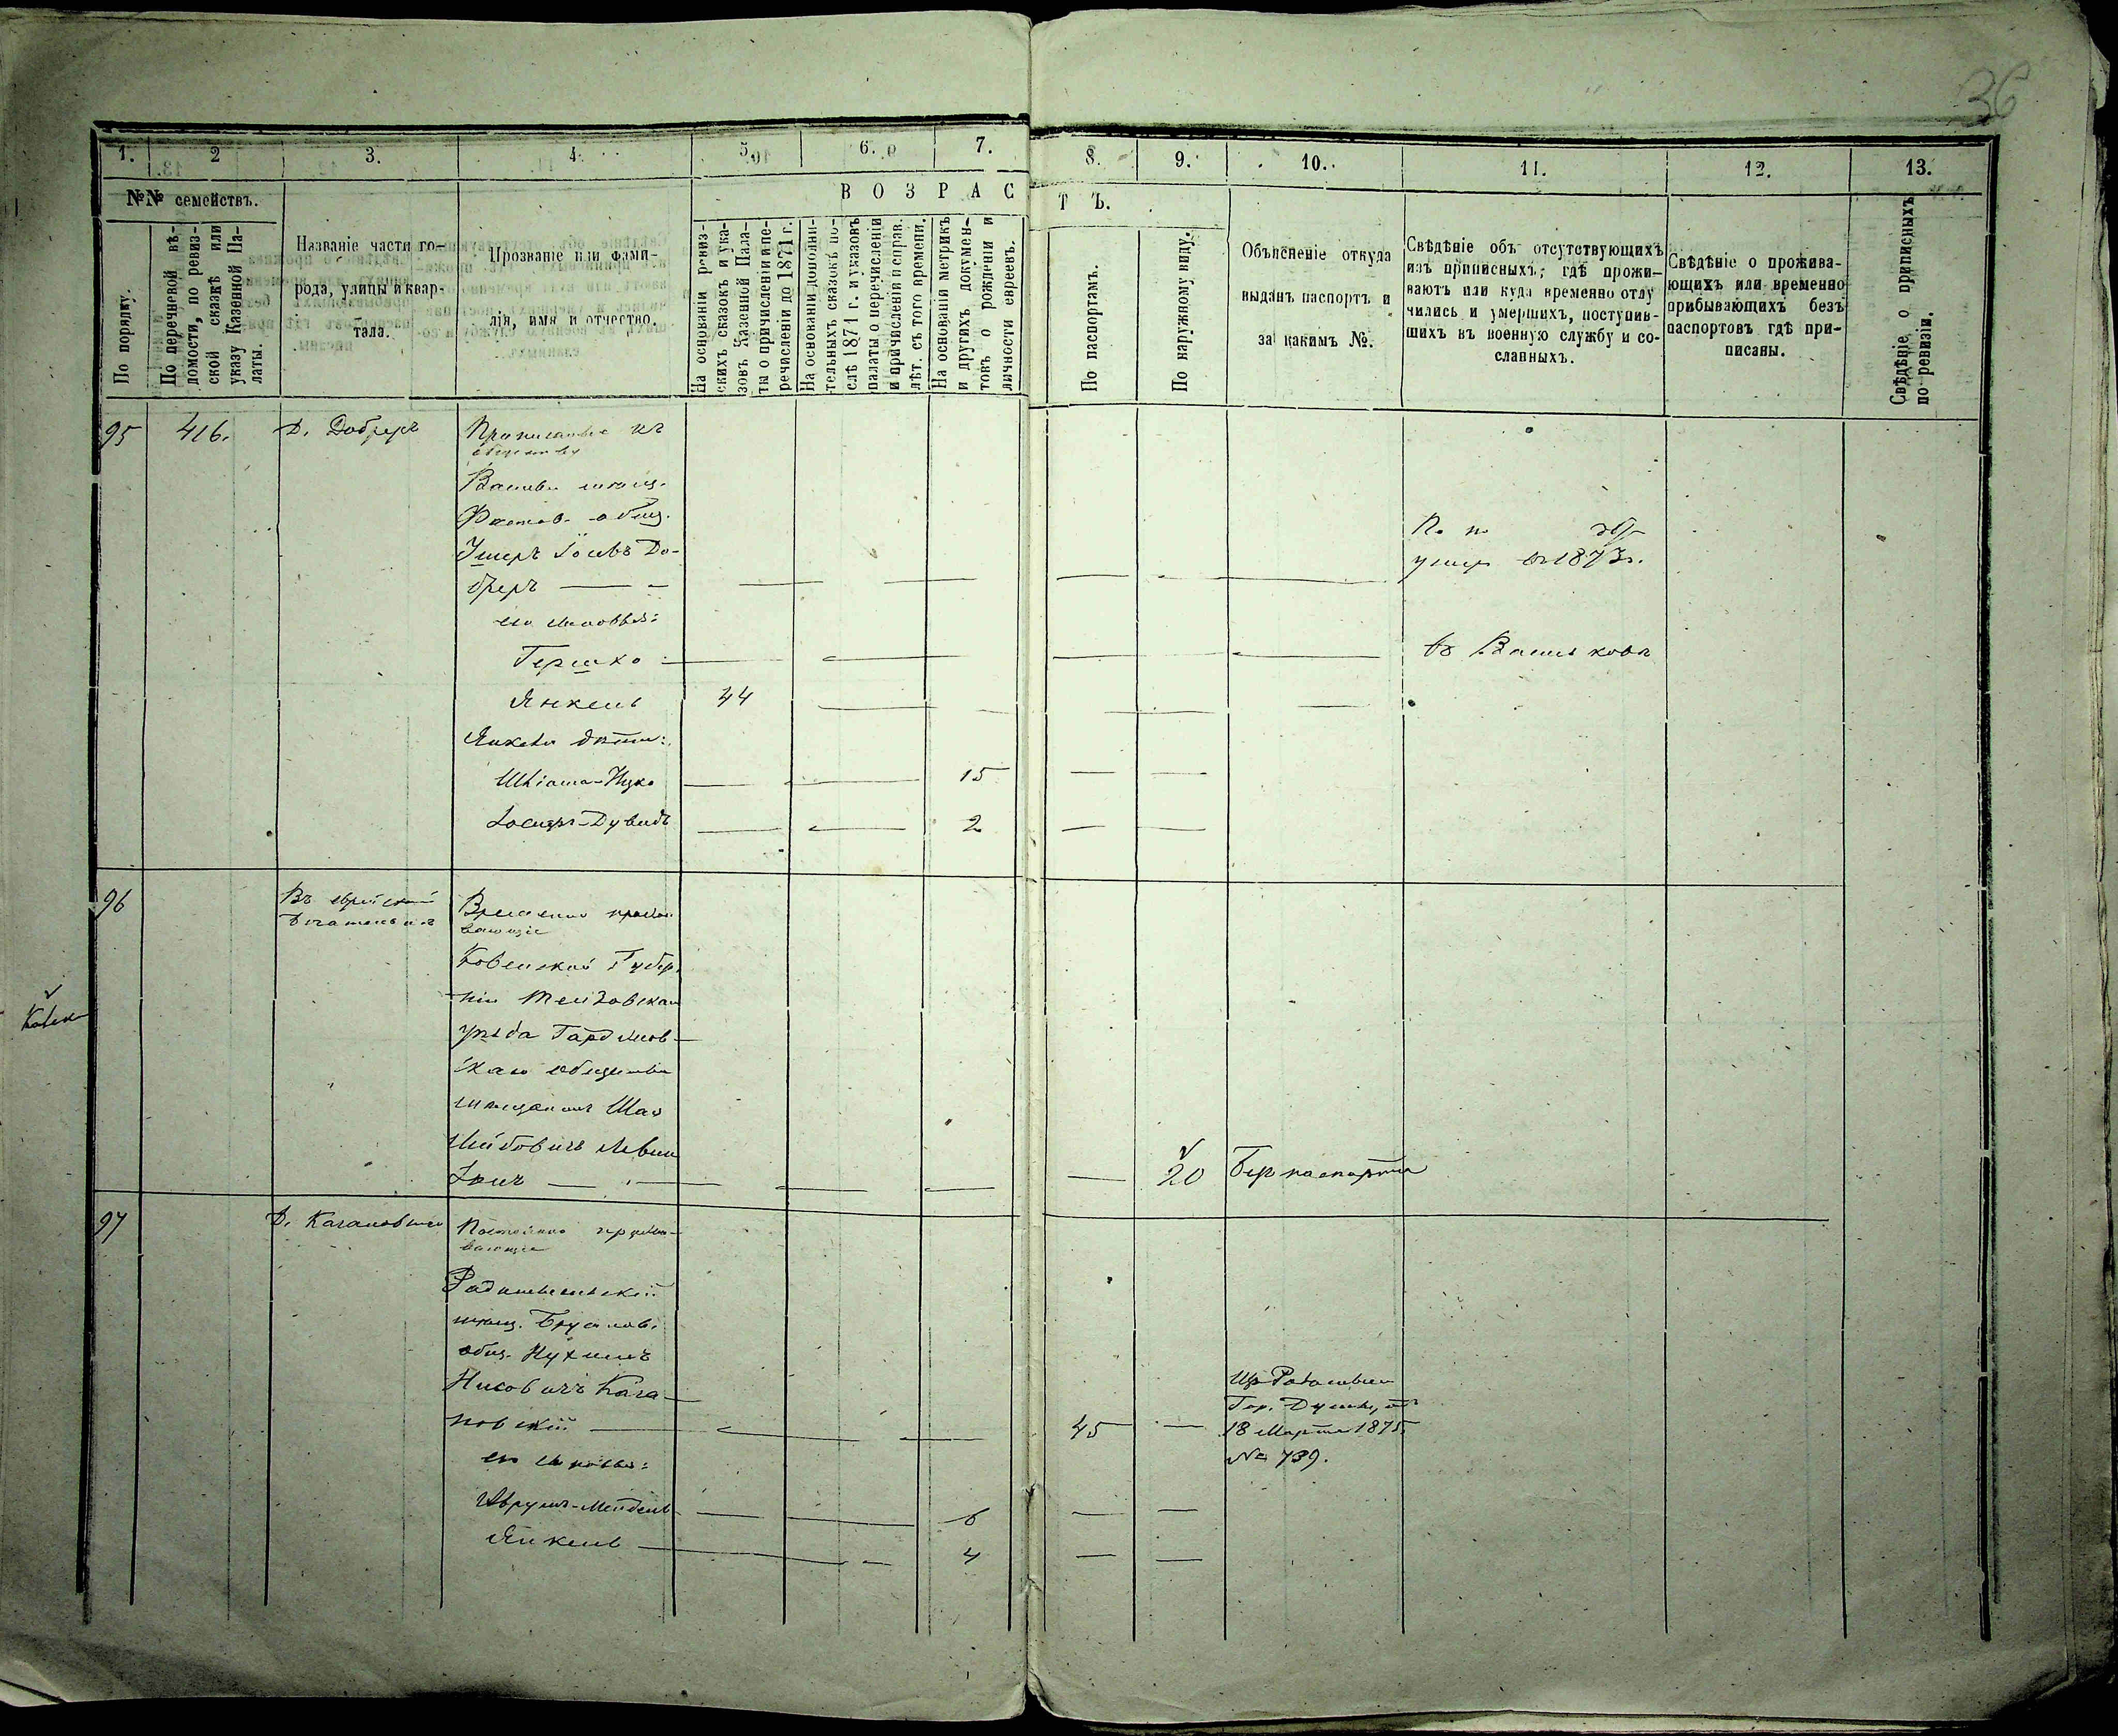 36
1. 2 3. 4. 5. 6. 7. 8. 9. 10. 11. 12. 13.
№№ семействъ.
ВОЗРАСТЪ.
По порядку.
По перечневой вѣ-
домости, по ревиз-
ской сказкѣ или
указу Казенной Па-
латы.
Названіе части го-
рода, улицы и квар-
тала.
Прозваніе или фами-
лія, имя и отчество.
На основаніи ревиз-
скихъ сказокъ и ука-
зовъ Казенной Пала-
ты о причисленіи и пе-
речисленіи до 1871 г.
На основаніи дополни-
тельныхъ сказокъ по-
слѣ 1871 г. и указовъ
палаты о перечисленіи
и причисленіи и справ.
лѣт. съ того времени.
На основаніи метрикъ
и другихъ докумен-
товъ о рожденіи и
личности евреевъ.
По паспортамъ.
По наружному виду.
Объясненіе откуда
выданъ паспортъ и
за какимъ №.
Свѣдѣніе объ отсутствующихъ
изъ приписныхъ, гдѣ прожи-
ваютъ или куда временно отлу
чились и умершихъ, поступив-
шихъ въ военную службу и со-
сланныхъ.
Свѣдѣніе о прожива-
ющихъ или временно
прибывающихъ безъ
паспортовъ гдѣ при-
писаны.
Свѣдѣніе о приписныхъ
по ревизіи.
95 416. Д. Добреръ
Приписанные къ
обществу
Васильк. мѣщ.
Фастов. общ.
Ушеръ Іосевъ До-
бреръ
умер въ 1873 г.
его сыновья:
Гершко
въ Васильковѣ
Янкель 44
Янкеля дѣти:
Шліома-Ицко 15
Іосифъ-Дувидъ 2
96 Въ еврейской
богательнѣ
Временно прожи
вающіе
Ковенской Губер-
ніи Тельшовскаго
уѣзда Гордомов-
скаго общества
мѣщанинъ
Левин
20 Безъ паспорта
97 Д. Кагановскаго
Постоянно прожи-
вающіе
Радомысльскій
мѣщ. Брусилов.
общ. Нухимъ
Нисовичъ Кага-
новскій 45
Изъ Радомысл.
Гор. Думы, отъ
18 Марта 1875
№ 739.
его сыновья:
Аврумъ-Мендель 6
Янкель 4